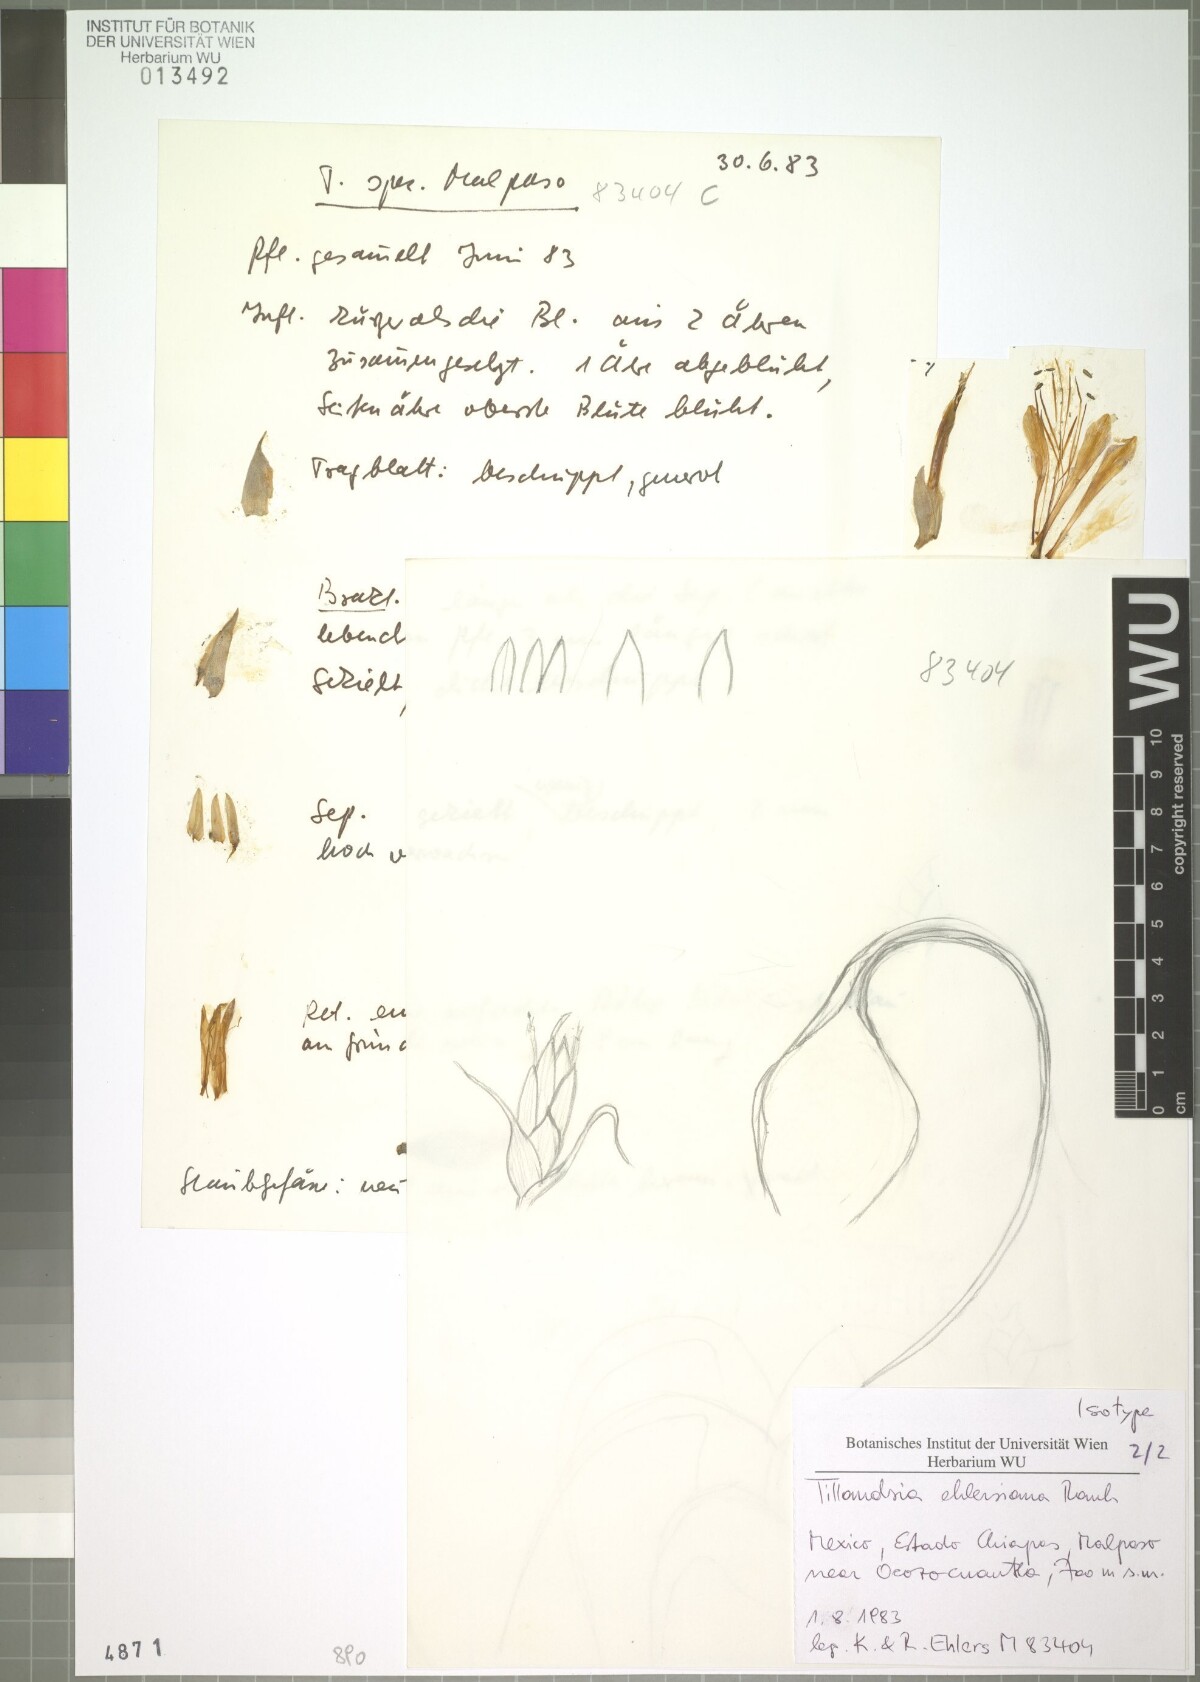 INSTITUT FÜR BOTANIK
DER UNIVERSITÄT WIEN
Herbarium WU
013492
30.6.83
T. spec. Malpaso 83404 C
Pfl. gesam̄elt Juni 83
Infl. kürzer als die Bl. aus 2 Ähren
zusam̄engesetzt. 1 Ähre abgeblüht,
Seitenähre oberste Blüte blüht.
Tragblatt: beschuppt, genervt
Brakt.
lebend
gekielt,
Sep.
hoch v
Pet.
an Grund
Staubgefässe:
83404
WU
0 1 2 3 4 5 6 7 8 9 10
cm
copyright reserved
Isotype
Botanisches Institut der Universität Wien
Herbarium WU
2/2
Tillandsia ehlersiana Rauh
Mexico, Estado Chiapas, Malpaso
near Ocozocuautla, 700 m s.m.
1. 8. 1983
leg. K. & R. Ehlers M 83404
4871
890